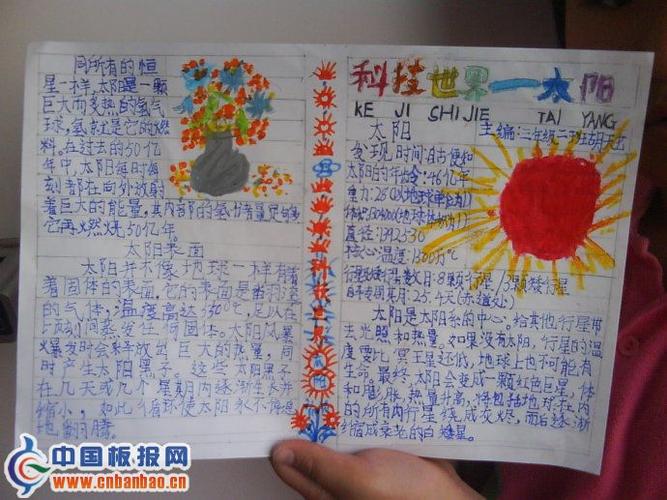 同所有的恒
星一样,太阳是一颗
巨大而炙热的氢气
球,氢就是它的燃
料。在过去的50亿
年中,太阳每时每
刻都在向外放射
着巨大的能量,其内部的氢
它再燃烧50亿年。
太阳表面
太阳并不像地球一样有着
着固体的表面,它的表面是
的气体,温度高达 足以在
间蒸发任何固体。太阳风暴
爆发时会释放出巨大的热量,同
时产生太阳黑子。这些太阳黑子
在几天或几个星期内逐渐生长并
缩小,如此循环使太阳永不停息
地翻腾。
科技世界一太阳
KE JI SHI JIE TAI YANG
太阳
主编:三年级二班
发现时间:自古便知
太阳的年龄:46亿年
重力:
体积:1304000(地球体积为1)
直径:1392530
核心温度:1500万℃
行星数目:8颗行星/3颗矮行星
自转周期:25.4天(赤道处)
太阳是太阳系的中心。给其他行星带
去光照和热量。如果没有太阳,行星的温
度要比冥王星还低,地球上也不可能有
生命。最终,太阳会变成一颗红色巨星,体
积膨胀,热量升高,将包括地球在内
的所有内行星烧成灰烬,而后逐渐
缩成衰老的白矮星。
中国板报网
www.cnbanbao.cn